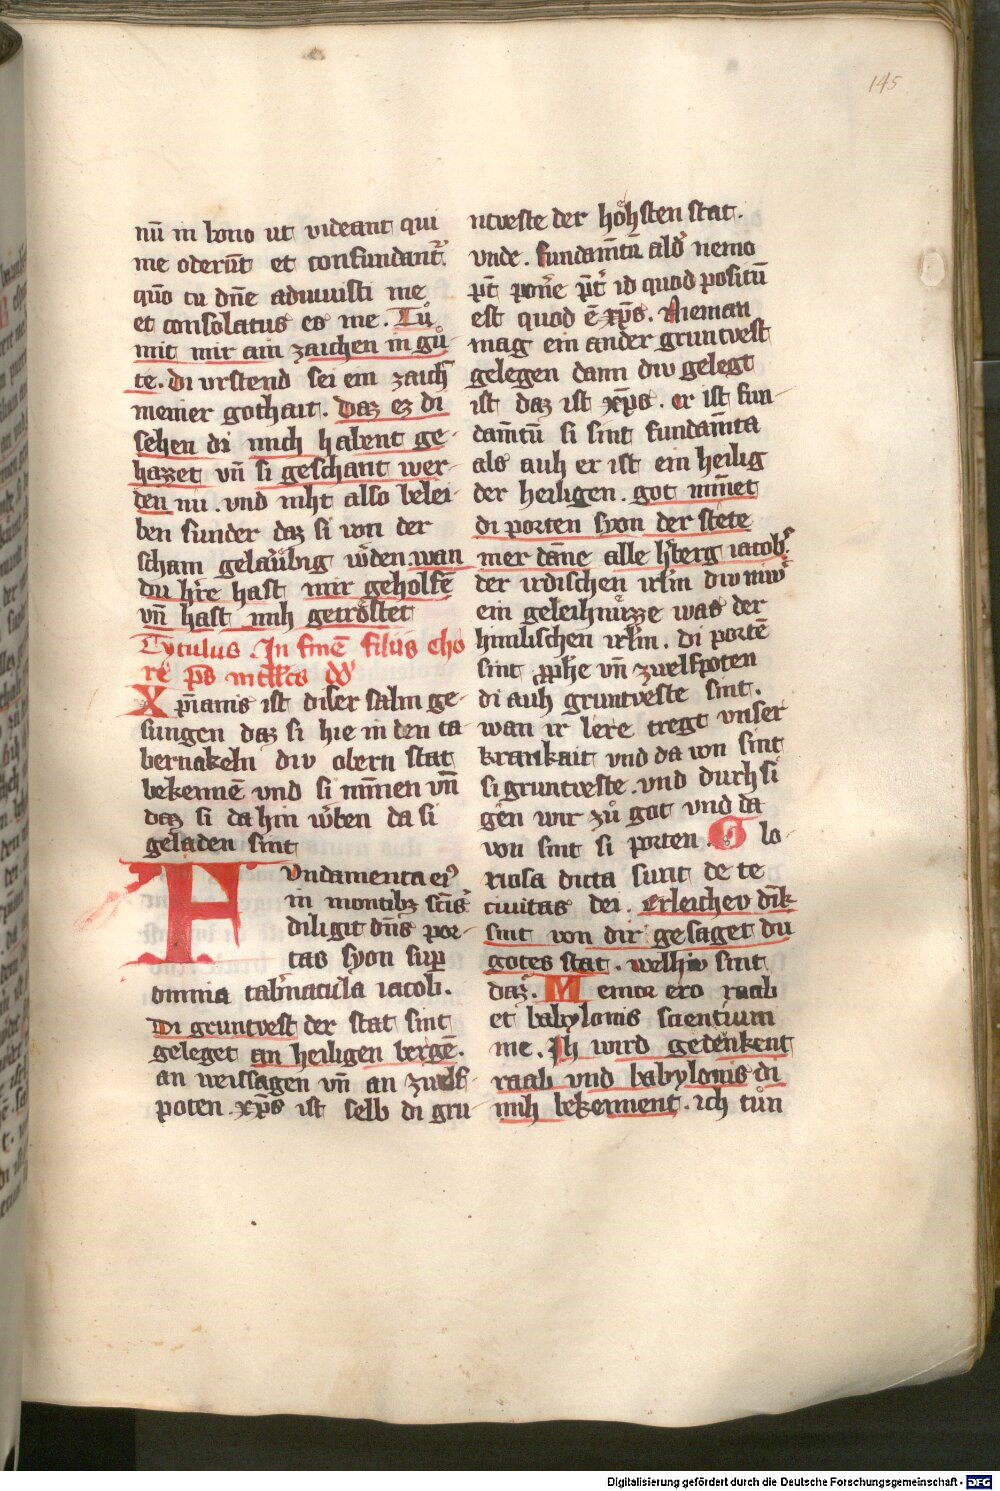 145
nū in bono ut videant qui
me oderūt et confundant᷑.
qūo tu dn̄e adiuuisti me
et consolatus es me. Tů
mit mir ain zaichen in gů
te. Di vrstend sei ein zaich̄
meiner gothait. Daz ez di
sehen di mich habent ge
hazzet vn̄ si geschant wer
den nu. vnd niht also belei
ben sunder daz si von der
scham gelaͮubig w̄den. wan
du hr̄e hast mir geholfē
vn̄ hast mih getroͤstet
Tytulus. In finē filiis cho
re ps̄
Xp̄ianis ist diser salm ge
sungen daz si hie in den ta
bernakeln div obern stat
bekennē vnd si minnen vn̄
daz si da hin w̄ben da si
geladen sint
Fvndamenta ei᷒
in montib᷒ scīs
diligit dn̄s por
tas syon sup̄
omnia tab̄nacula iacob.
Di gruntvest der stat sint
geleget an heiligen bergē.
an weissagen vn̄ an zwelf
poten. xp̄s ist selb di gru
ntveste der hoͤhsten stat.
vnde. fundam̄tū ald᷑ nemo
pt̄ pone᷑ pt̄ id quod positū
est quod ē xp̄s. Nieman
mag ein ander gruntvest
gelegen dann div gelegt
ist daz ist xp̄s. er ist fun
dam̄tū si sint fundam̄ta
als auh er ist ein heilig
der heiligen. got minnet
di porten syon der stete
mer dan̄e alle h̄berg iacob᷒.
der irdischen irl̄m div niw᷑
ein geleihnuͤzze was der
himlischen irl̄m. di portē
sint pphē vn̄ zwelfpoten
di auh gruntveste sint.
wan ir lere tregt vnser
krankait vnd da von sint
si gruntveste. vnd durh si
gen wir zů got vnd da
von sint si porten. Glo
riosa dicta sunt de te
ciuitas dei. Erleichev dīk
sint von dir gesaget du
gotes stat. welhiv sint
daz. Memor ero raab
et babylonis scientium
me. Ih wird gedenkent
raab vnd babylonis di
mih bekennent. ich tůn
Digitalisierung gefördert durch die Deutsche Forschungsgemeinschaft - DFG